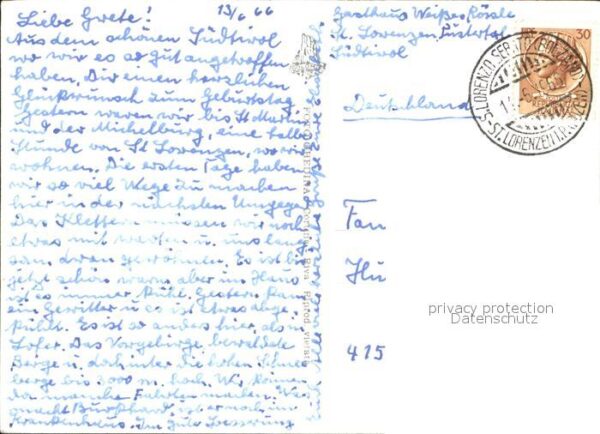 13/6 66
Liebe Grete!
Aus dem schönen Südtirol
wo wir es so gut angetroffen
haben, Dir einen herzlichen
Glückwunsch zum Geburtstag
Gestern waren wir bis St Martin
und der Michelburg, eine halbe
Stunde von St Lorenzen, wo wir
wohnen. Die ersten Tage haben
wir so viel Wege zu machen
hier in der nächsten Umgegend
Das Klettern müssen wir noch
etwas mit werten u. uns lang
sam daran gewöhnen. Es ist bis
jetzt schön warm aber im Haus
ist es immer kühl. Gestern kam
ein Gewitter u es ist etwas abge
kühlt. Es ist so anders hier, als in
Lofer. Das Vorgebirge bewaldete
Berge u. dahinter die hohen Schnee
berge bis 3000 m. hoch. Wir können
da manche Fahrten machen. Was
macht Burkhard, ist er noch im
Krankenhaus. Ihm gute Besserung
Gasthaus Weißes Rössle
St. Lorenzen, Pustertal
Südtirol
Deutschland
30
S. LORENZO
ST. LORENZEN
Fan
Hu
415
privacy protection
Datenschutz